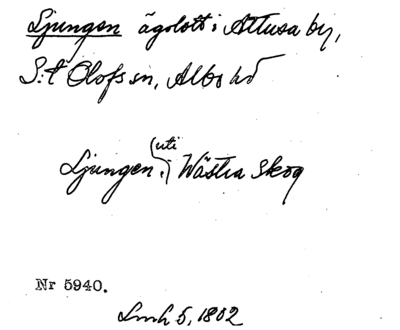 Ljungen ägolott i Attusa by,
S:t Olofs sn, Albo hd
Ljungen (uti i) Wästra Skog
Nr 5940.
Lmh 5, 1802